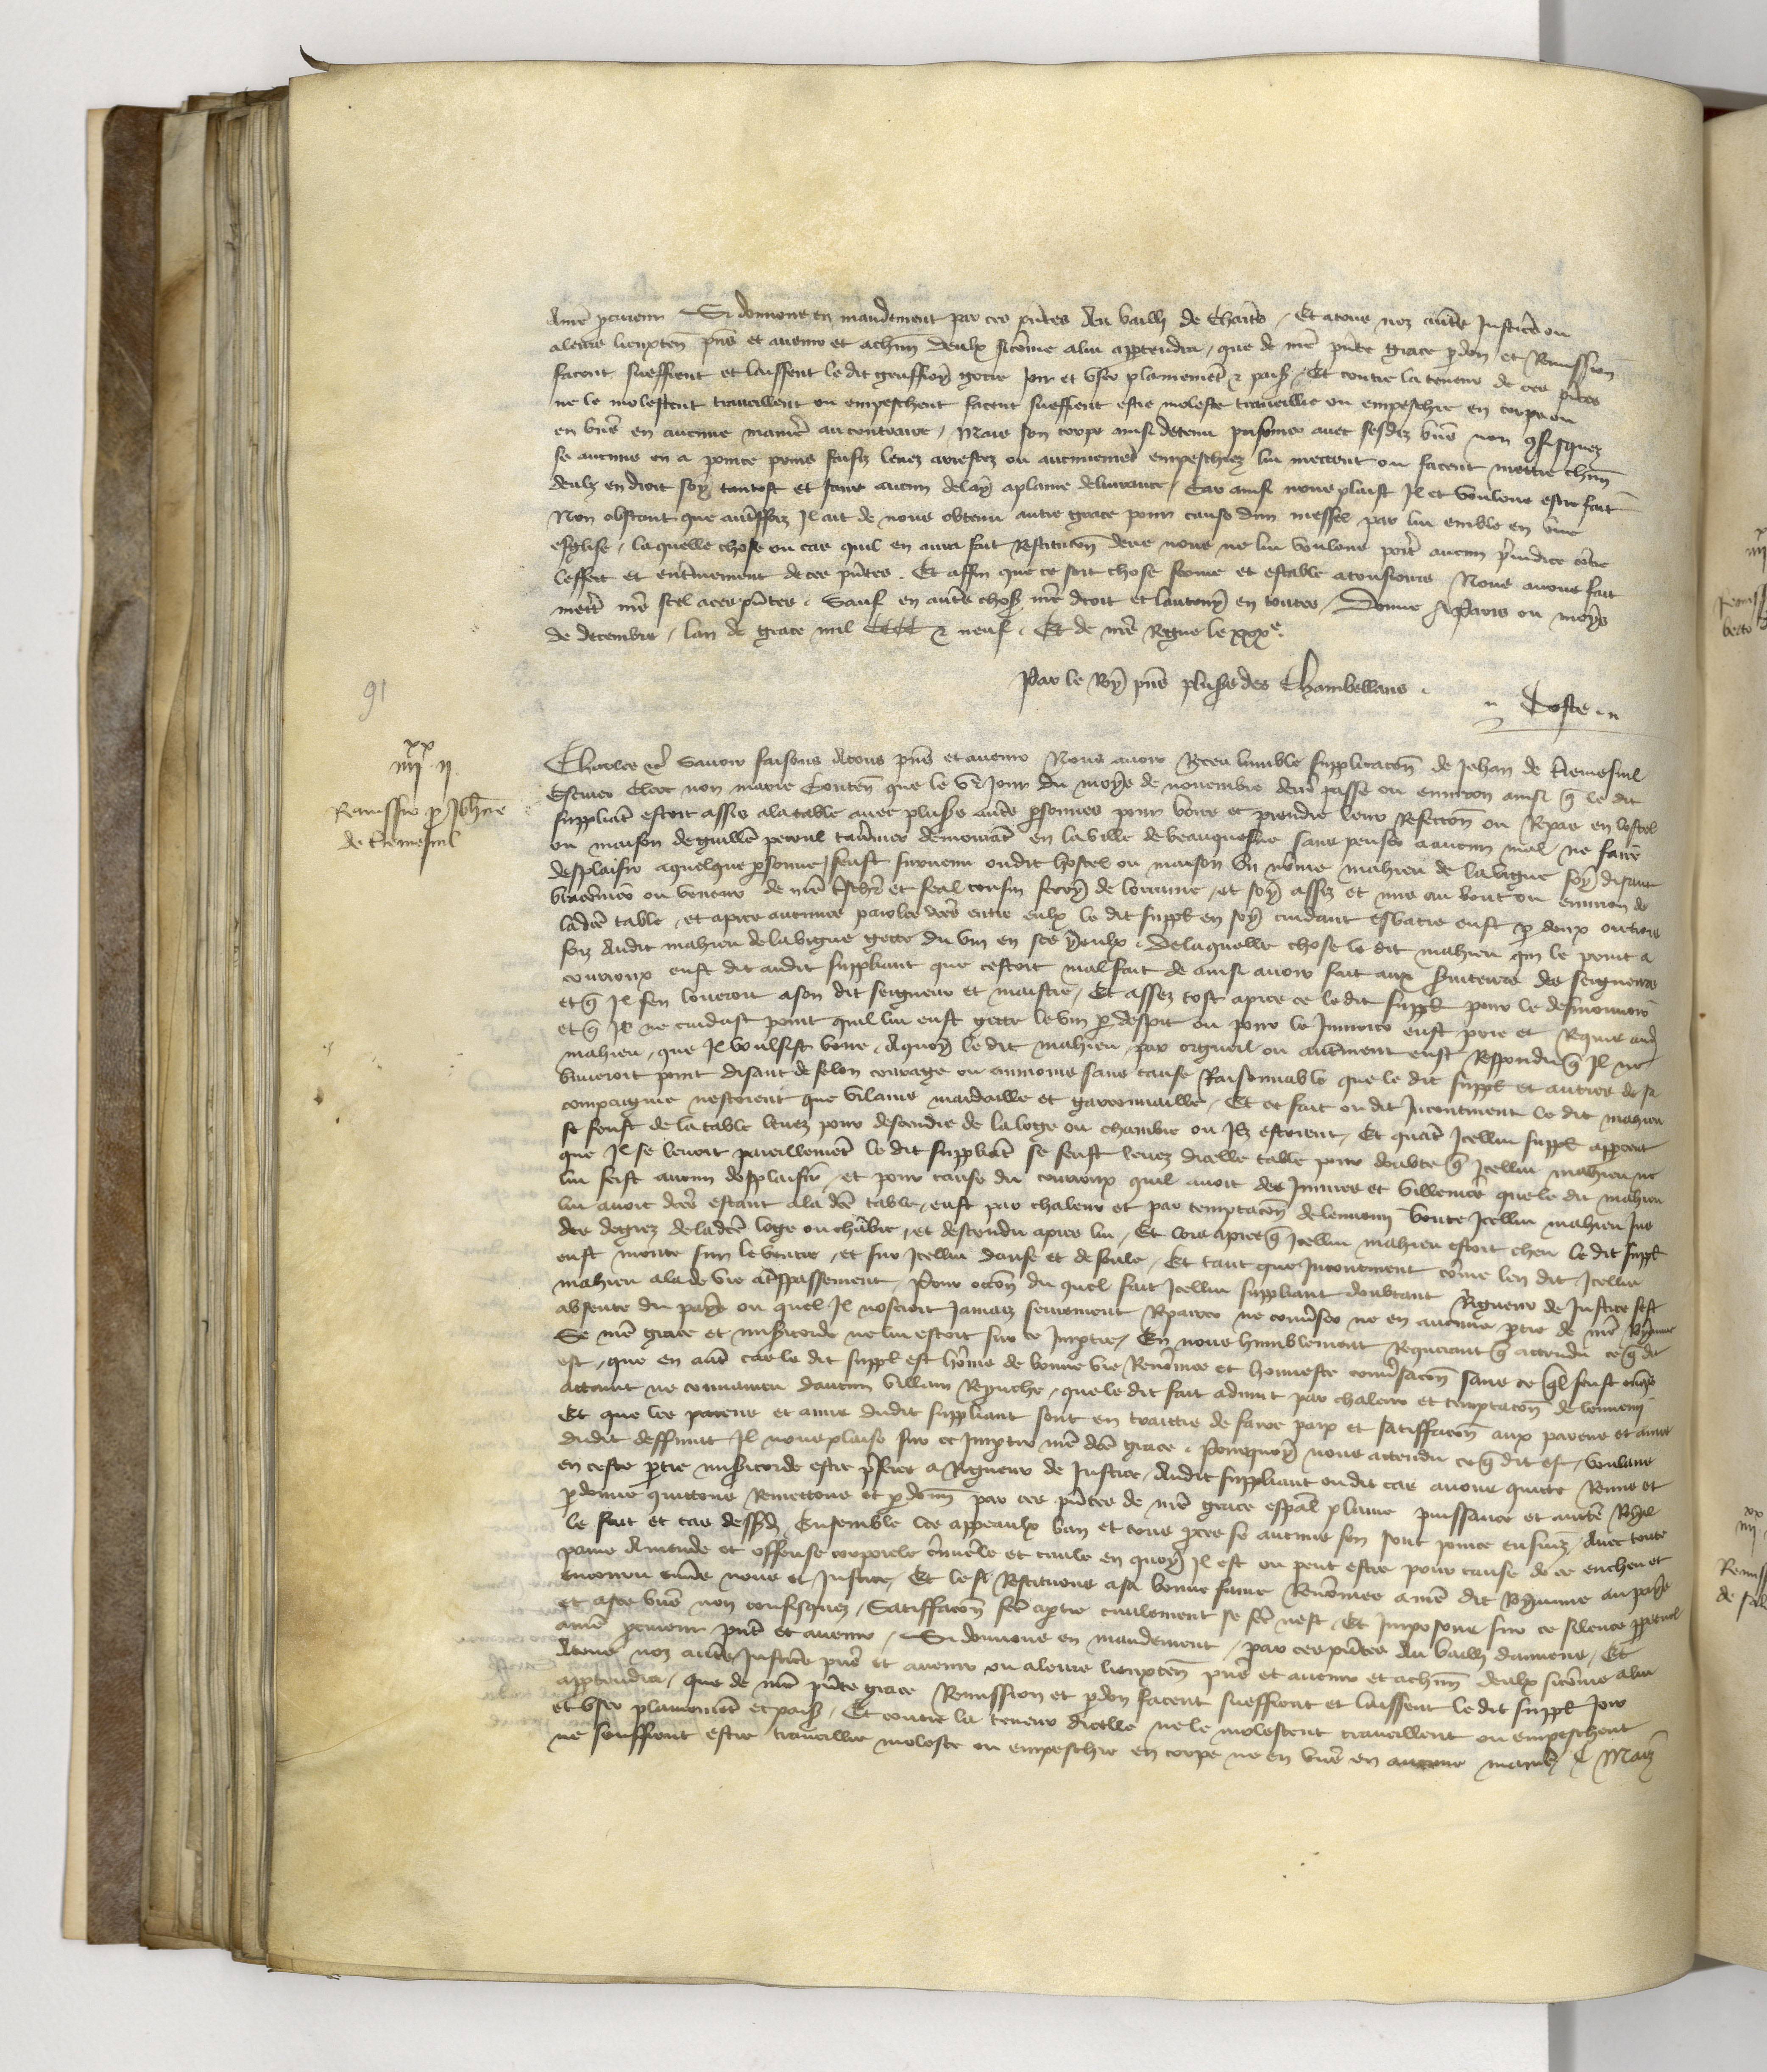 A nr̃e procureur Si donnons en mandement par ces pñtes Au bailli de Chartˢ / Et a tous noz autres Justicˢ ou
a leurs lieuxten̄ pñs et avenir et a chũn deulx si cõme a lui appartendra / que de nr̃e pñte grace pardon et Remission
facent sueffrent et laissent le dit Joir et user plainement & paisˢ / Et contre la teneur de ces pñtes
ne le molestent travaillent ou empeschent facent sueffrent estre moleste travaillie ou empeschie en corps ou
en biẽs en aucune manieˢ au contraire / Mais son corps ainsi detenu prisonnier avec sesdiz biẽs non ꝯfisquez
se aucuns en a pour ce prins saisiz levez arrestez ou aucunement empeschiez lui mettent ou facent mettre chũn
deulx en droit soy tantost et sans aucun delay a plaine delivrance / Car ainsi nous plaist Il et voulons estre fait
Non obstant que autreffoiz Il ait de nous obtenu autre grace pour cause dun messel par lui emble en une
esglise / laquelle chose ou cas quil en aura fait Restitucõn deue nous ne lui voulons porter aucun p̃iudice contre
leffect et enterinement de ces pñtes . Et affin que ce soit chose ferme et estable a tousiours Nous avons fait
mettre nr̃e scel a ces pñtes . Sauf en autres choses nr̃e droit et lautruy en toutes / Donne A Paris ou moys
de decembre / lan de grace mil CCCC & neuf . Et de nr̃e Regne le xxxᵉ.
Par le Roy pñs plusˢs des Chambellans .
Coste
91
xx
iiii . ii
Remissio p Joh̃ne
de
Charles &c̃ Savoir faisons A tous pñs et avenir Nous avoir Receu lumble supplicacõn de Jehan de
Escuier Clerc non marie Conteñ que le vᵉ Jour du moys de novembre derr̃ passe ou environ ainsi q̃ le dit
suppliãt estoit assis a la table avec plusˢs autres personnes pour boire et prendre leur Refeccõn ou Repas en lostel
ou maison de guillẽ tavernier demourãt en la ville de beauquesne sans penser a aucun mal ne faire
desplaisir a quelque personne / feust survenu oudit hostel ou maison Un nõme mahieu de la vigne soy disant
ou veneur de nr̃e tsch̃r et feal cousin ferry de lorraine / et soy assis et mis au bout ou environ de
ladc̃e table / et apres aucunes paroles dc̃es entre eulx le dit supplˢ en soy cuidant esbatre eust p̱ deux ou trois
foiz Audit mahieu de la vigne gette du vin en ses yeulx . De laquelle chose le dit mahieu qui le print a
courroux eust dit audit suppliant que cestoit mal fait de ainsi avoir fait aux serviteurs des seigneurs
et q̃ Il sen loueroit a son dit seigneur et maistre / Et assez tost apres ce le dit supplˢ pour le desmouvoir
et q̃ Il ne cuidast point quil lui eust gette le vin p̱ despit ou pour le Iniurier eust prie et Requis aud̃
mahieu / que Il voulsist boire . A quoy le dit mahieu par orgueil ou autrement eust Respondu q̃ Il ne
buveroit point disant de felon courage ou animoux sans cause Raisonnable que le dit supplˢ et autres de sa
compaignie nestoient que vilains merdaille et garconnaille / Et ce fait ou dit Incontinent le dit mahieu
se feust de la table levez pour descendre de la loge ou chambre ou Ilz estoient / Et quãt Icellui supplˢ appercut
que Il se levoit pareillement le dit suppliãt se feust levez dicelle table pour doubte q̃ Icellui mahieu ne
lui feist aucun desplaisir / et pour cause du courroux quil avoit des Iniures et villenies que le dit mahieu
lui avoit dc̃es estant a la dc̃e table / eust par chaleur et par temptacõn de lennemi boute Icellui mahieu jus
des degrez de la dc̃e loge ou chãbre / et descendu apres lui / Et lors apres q̃ Icellui mahieu estoit cheu le dit supplˢ
eust monte sur le ventre / et sur Icellui danse et defoule / Et tant que Incontinent cõme len dit Icellui
mahieu ala de vie a trespassement / Pour occõn du quel fait Icellui suppliant doubtant Rigueur de Justice sest
absente du pays ou quel Il noseroit Jamais seurement Reparer ne converser ne en aucune partie de nr̃e Royaume
Se nr̃e grace et misericorde ne lui estoit sur ce Impartie / En nous humblement Requerant q̃ attendu ce q̃ dit
est / que en autˢ cas le dit supplˢ est hõme de bonne vie Renõmee et honneste conversacõn sans ce q̃l feust oncques
attaint ne convaincu daucun villain Reprouche / que le dit fait advint par chaleur et temptacõn de lennemi
Et que les parens et amis dudit suppliant sont en traittie de faire paix et satiffacõn aux parens et amis
dudit deffunct Il nous plaise sur ce Impartir nr̃e dc̃e grace . Pourquoy nous attendu ce q̃ dit est / voulans
en ceste partie misericorde estre preferee a Rigueur de Justice / Audit suppliant oudit cas avons quitte Remis et
pardonne quittons Remettons et pardonnons par ces pñtes de nr̃e grace esp̃al plaine puissance et auctˢ Royal
le fait et cas dessusˢ / Ensemble les appeaulx ban et tous se aucuns sen sont pource ensuiz / Avec toute
paine Amende et offense corporele criminelle et civile en quoy Il est ou peut estre pour cause de ce encheu et
encouru envers nous et Justice / Et le Restituons a sa bonne fame Renõmee a nr̃e dit Royaume au pays
et a ses biẽs non confisquez / Satiffacõn fc̃e a partie civilement se fc̃e nest / Et Imposons sur ce silence perpetuel
a nr̃e procureur pñt et avenir / Si donnons en mandement / par ces pñtes Au bailli damiens / Et
A tous noz autres Justicˢ pñs et avenir ou a leurs lieuxten̄ pñs et avenir et a chũn deulx si cõme a lui
appartendra / que de nr̃e pñte grace Remission et pardon facent sueffrent et laissent le dit supplˢ Joir
et user plainement et paisˢ / Et contre la teneur dicelle ne le molestent travaillent ou empeschent
ne souffrent estre travaillie moleste ou empeschie en corps ne en biẽs en aucune manieˢ &c̃ Mais